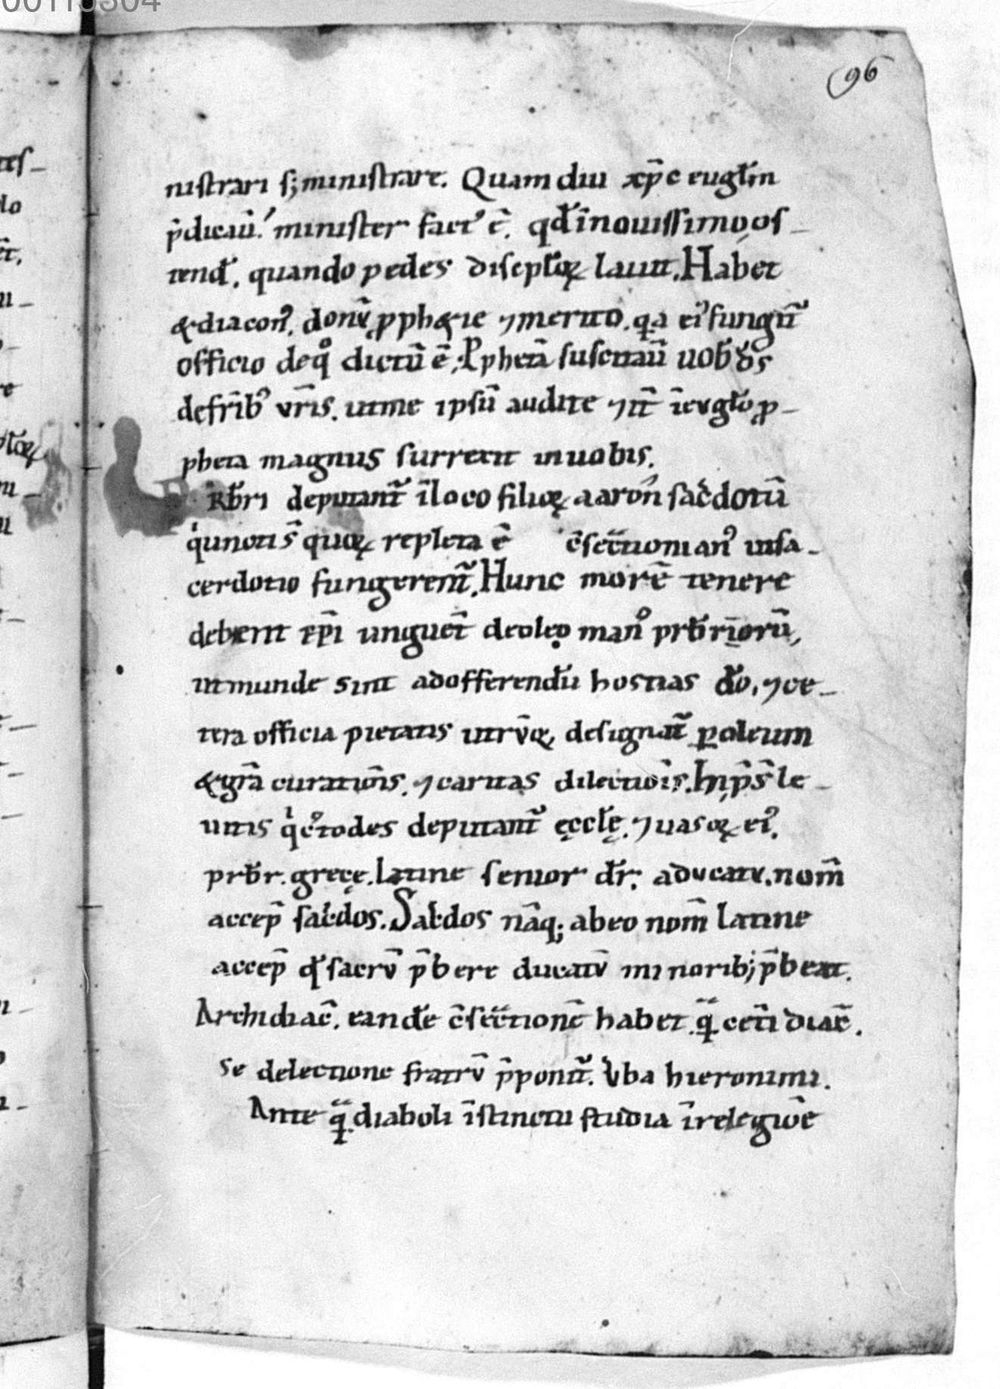 96
nistrari s; ministrare. Quam diu xp̄c euḡlm
p̄dicaū. minister fact᾽ ē. qđ in nouissimo os-
tend̄. quando pedes discip̄loꝝ lauit. Habet
& diacon᾽, donū ꝓph&ie ⁊ merito. q̇a ei᾽ fungit̄
officio de qͦ dictū ē; Ꝓphetā suscitaū uob̄ d̄s
de frib᾽ vr̄is. ut me ipsū audite ⁊ it̄ ī euḡlo ꝓ-
pheta magnus surrexit in uobis.
Pr̄bri deputant̄ ī loco filioꝝ aaron sac̄dotū
q̇ unctis quoꝝ repleta ē c̄sec̄tioni an᾽ ut sa-
cerdotio fungerent̄. Hunc morē tenere
debent ep̄i unguet̄ de oleo man᾽ pr̄brīorū,
ut munde sint ad offerendū hostias d̄o, ⁊ ce-
tera officia pietatis utrūq̨, designat̄ ꝑ oleum
& gr̄a curatiōis. ⁊ caritas dilectiōis. le-
uitis q̇ c᾽todes deputant̄ ęcclę̄. ⁊ uasoꝝ ei᾽.
pr̄br. gręce. latine senior d̄r. a ducatv. nom̄
accep̄ sac̄dos. Sac̄dos nāq; ab eo nom̄ latine
accep̄ q̄ sacrū p̄bere ducatū minorib; p̄beat.
Archidiac̄. eandē c̄sec̄tionē habet. q̄ cet̄i diac̄.
Se delectione fratrū p̄ponit̄. Vba hieronimi.
Ante q̄ diaboli īstinctu studia ī relegiōe